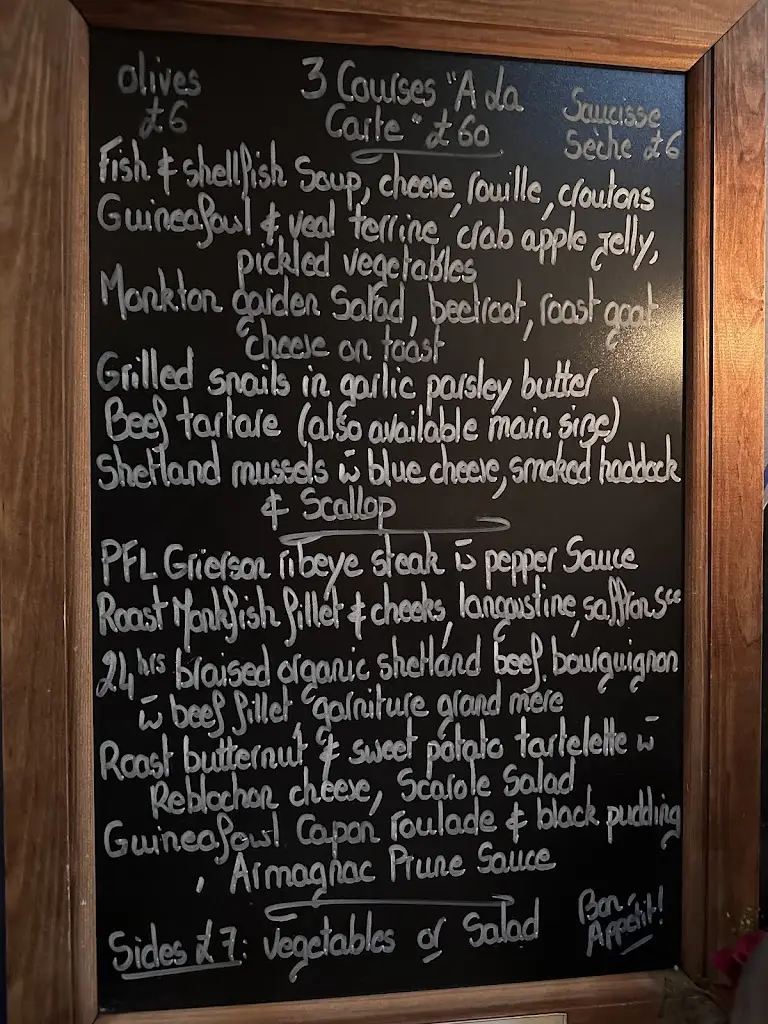 Olives
£6
3 Courses "A La
Carte" £60
Saucisse
Sèche £6
Fish & shellfish Soup, cheese, rouille, croutons
Guineafowl & veal terrine, crab apple jelly,
pickled vegetables
Monkton garden Salad, beetroot, roast goat
cheese on toast
Grilled snails in garlic parsley butter
Beef tartare (also available main size)
Shetland mussels w̄ blue cheese, smoked haddock
& Scallop
PFL Grierson ribeye steak w̄ pepper Sauce
Roast Monkfish fillet & cheeks, langoustine, saffron Sce
24hrs braised organic shetland beef bourguignon
w̄ beef fillet, garniture grand mere
Roast butternut & sweet potato tartelette w̄
Reblochon cheese, Scarole Salad
Guineafowl Capon roulade & black pudding
, Armagnac Prune Sauce
Sides £7: vegetables or Salad
Bon
Appetit!